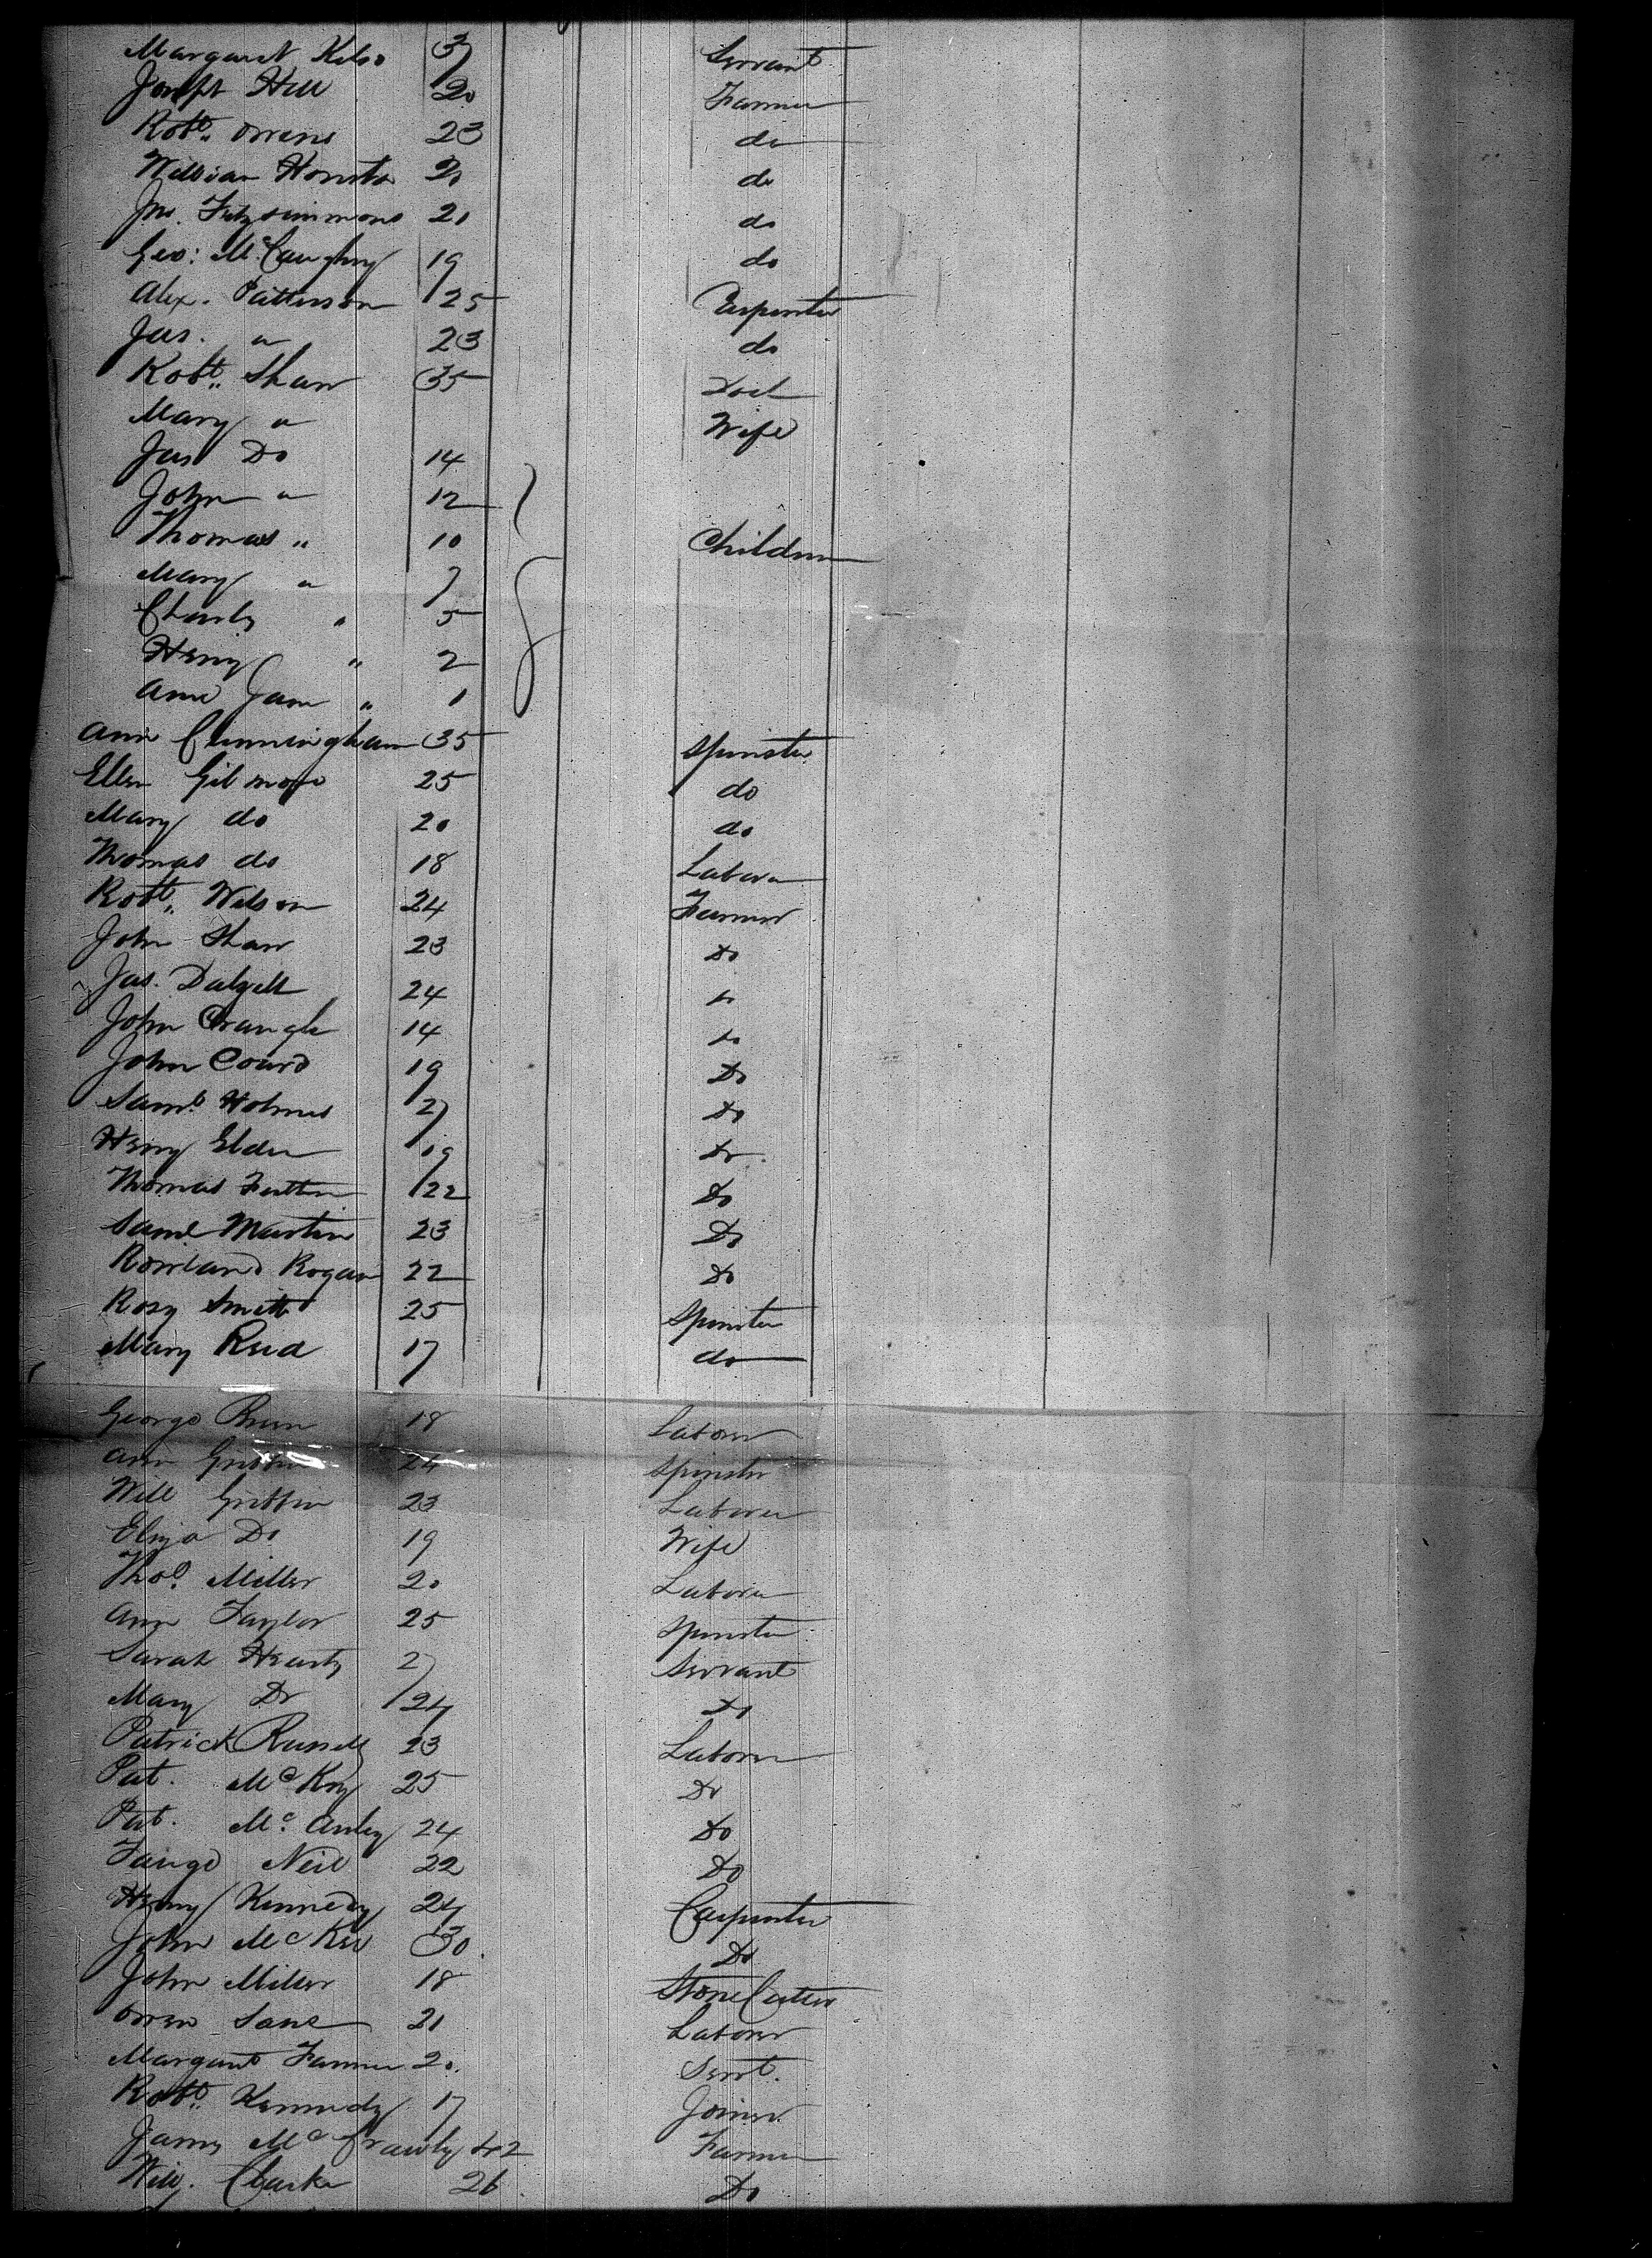 Margaret Kelso 37 Servant
Joseph Hill 20 Farmer
Robt. Owens 23 do
William Houston 20 do
Jno. Fitzsimmons 21 do
Geo: McCaughny 19 do
Alex. Patterson 25 Carpenter
Jas. " 23 do
Robt. Shaw 35
Mary " Wife
Jas Do 14
John " 12
Thomas " 10 Children
Mary " 7
Charles " 5
Henry " 2
Ann Jane " 1
Ann Cunningham 35 Spinster
Ellen Gilmore 25 do
Mary do 20 do
Thomas do 18 Laborer
Robt. Wilson 24 Farmer
John Shaw 23 Do
Jas. Dalzell 24 "
John Crangle 14 "
John Coard 19 Do
Saml. Holmes 27 Do
Henry Elder 19 Do
Thomas 22 Do
Saml Martin 23 Do
Rowland Rogan 22 Do
Rosy Smith 25 Spinster
Mary Reid 17 do
George 18 Laborer
Ann Griffin 24 Spinster
Will Griffin 23 Laborer
Eliza Do 19 Wife
Thos. Miller 20 Laborer
Ann Taylor 25 Spinster
Sarah Hearty 27 Servant
Mary Do 24 Do
Patrick Russell 23 Laborer
Pat. McKoy 25 Do
Pat. Mc 24 Do
Neil 22 Do
Henry Kennedy 24 Carpenter
John McKee 30 Do
John Miller 18 Stone Cutter
Owen 21 Laborer
Margaret Farmer 20. Servt.
Robt. Kennedy 17 Joiner
James Mc 42 Farmer
Will. Clarke 26. Do